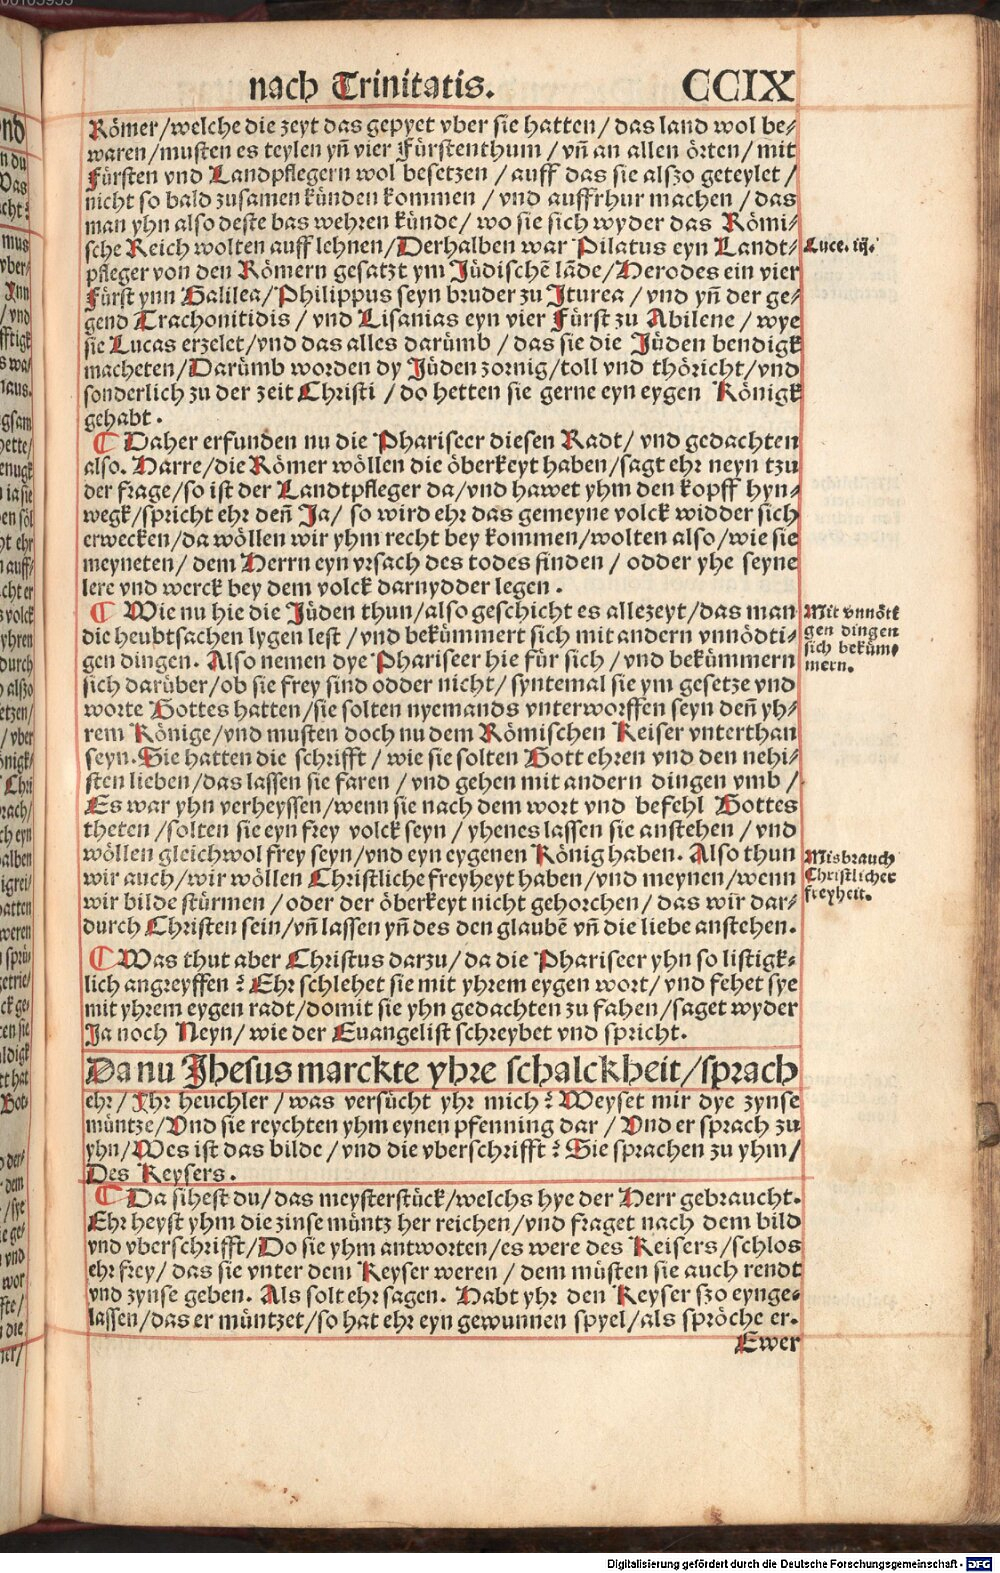 nach Trinitatis. CCIX
Römer/welche die zeyt das gepyet vber sie hatten/ das land wol be⸗
waren/musten es teylen yñ vier Fürstenthum/ vñ an allen örten/ mit
Fürsten vnd Landpflegern wol besetzen/ auff das sie alszo geteylet/
nicht so bald zusamen künden kommen/ vnd auffrhur machen/ das
man yhn also deste bas wehren künde/ wo sie sich wyder das Römi⸗
sche Reich wolten auff lehnen/Derhalben war Pilatus eyn Landt⸗
pfleger von den Römern gesatzt ym Jüdischē lāde/Herodes ein vier
Fürst ynn Galilea/Philippus seyn bruder zu Iturea/ vnd yñ der ge⸗
gend Trachonitidis/ vnd Lisanias eyn vier Fürst zu Abilene/ wye
sie Lucas erzelet/vnd das alles darümb/ das sie die Jüden bendigk
macheten/Darümb worden dy Jüden zornig/toll vnd thöricht/vnd
sonderlich zu der zeit Christi/do hetten sie gerne eyn eygen Königk
gehabt.
Luce. iij.
¶ Daher erfunden nu die Phariseer diesen Radt/ vnd gedachten
also. Harre/die Römer wöllen die öberkeyt haben/sagt ehr neyn tzu
der frage/so ist der Landtpfleger da/vnd hawet yhm den kopff hyn⸗
wegk/spricht ehr deñ Ja/ so wird ehr das gemeyne volck widder sich
erwecken/da wöllen wir yhm recht bey kommen/wolten also/wie sie
meyneten/ dem Herrn eyn vrsach des todes finden/ odder yhe seyne
lere vnd werck bey dem volck darnydder legen.
¶ Wie nu hie die Jüden thun/also geschicht es allezeyt/das man
die heubtsachen lygen lest/ vnd bekümmert sich mit andern vnnödti⸗
gen dingen. Also nemen dye Phariseer hie für sich/ vnd bekümmern
sich darüber/ob sie frey sind odder nicht/ syntemal sie ym gesetze vnd
worte Gottes hatten/sie solten nyemands vnterworffen seyn deñ yh⸗
rem Könige/vnd musten doch nu dem Römischen Keiser vnterthan
seyn. Sie hatten die schrifft/ wie sie solten Gott ehren vnd den nehi⸗
sten lieben/das lassen sie faren/ vnd gehen mit andern dingen vmb/
Es war yhn verheyssen/wenn sie nach dem wort vnd befehl Gottes
theten/solten sie eyn frey volck seyn/ yhenes lassen sie anstehen/ vnd
wöllen gleichwol frey seyn/vnd eyn eygenen König haben. Also thun
wir auch/wir wöllen Christliche freyheyt haben/vnd meynen/wenn
wir bilde stürmen/ oder der öberkeyt nicht gehorchen/ das wir dar⸗
durch Christen sein/vñ lassen yñ des den glaubē vñ die liebe anstehen.
Mit vnnöti
gen dingen
sich beküm⸗
mern.
Misbrauch
Christlicher
freyheit.
¶ Was thut aber Christus darzu/da die Phariseer yhn so listigk⸗
lich angreyffen? Ehr schlehet sie mit yhrem eygen wort/ vnd fehet sye
mit yhrem eygen radt/domit sie yhn gedachten zu fahen/saget wyder
Ja noch Neyn/ wie der Euangelist schreybet vnd spricht.
Da nu Jhesus marckte yhre schalckheit/sprach
ehr/ Ihr heuchler/was versücht yhr mich? Weyset mir dye zynse
müntze/Vnd sie reychten yhm eynen pfenning dar/ Vnd er sprach zu
yhn/Wes ist das bilde/vnd die vberschrifft? Sie sprachen zu yhm/
Des Keysers.
¶ Da sihest du/das meysterstück/welchs hye der Herr gebraucht.
Ehr heyst yhm die zinse müntz her reichen/vnd fraget nach dem bild
vnd vberschrifft/Do sie yhm antworten/es were des Keisers/schlos
ehr frey/das sie vnter dem Keyser weren/ dem müsten sie auch rendt
vnd zynse geben. Als solt ehr sagen. Habt yhr den Keyser szo eynge⸗
lassen/das er müntzet/so hat ehr eyn gewunnen spyel/als spröche er.
Ewer
Digitalisierung gefördert durch die Deutsche Forschungsgemeinschaft - DFG